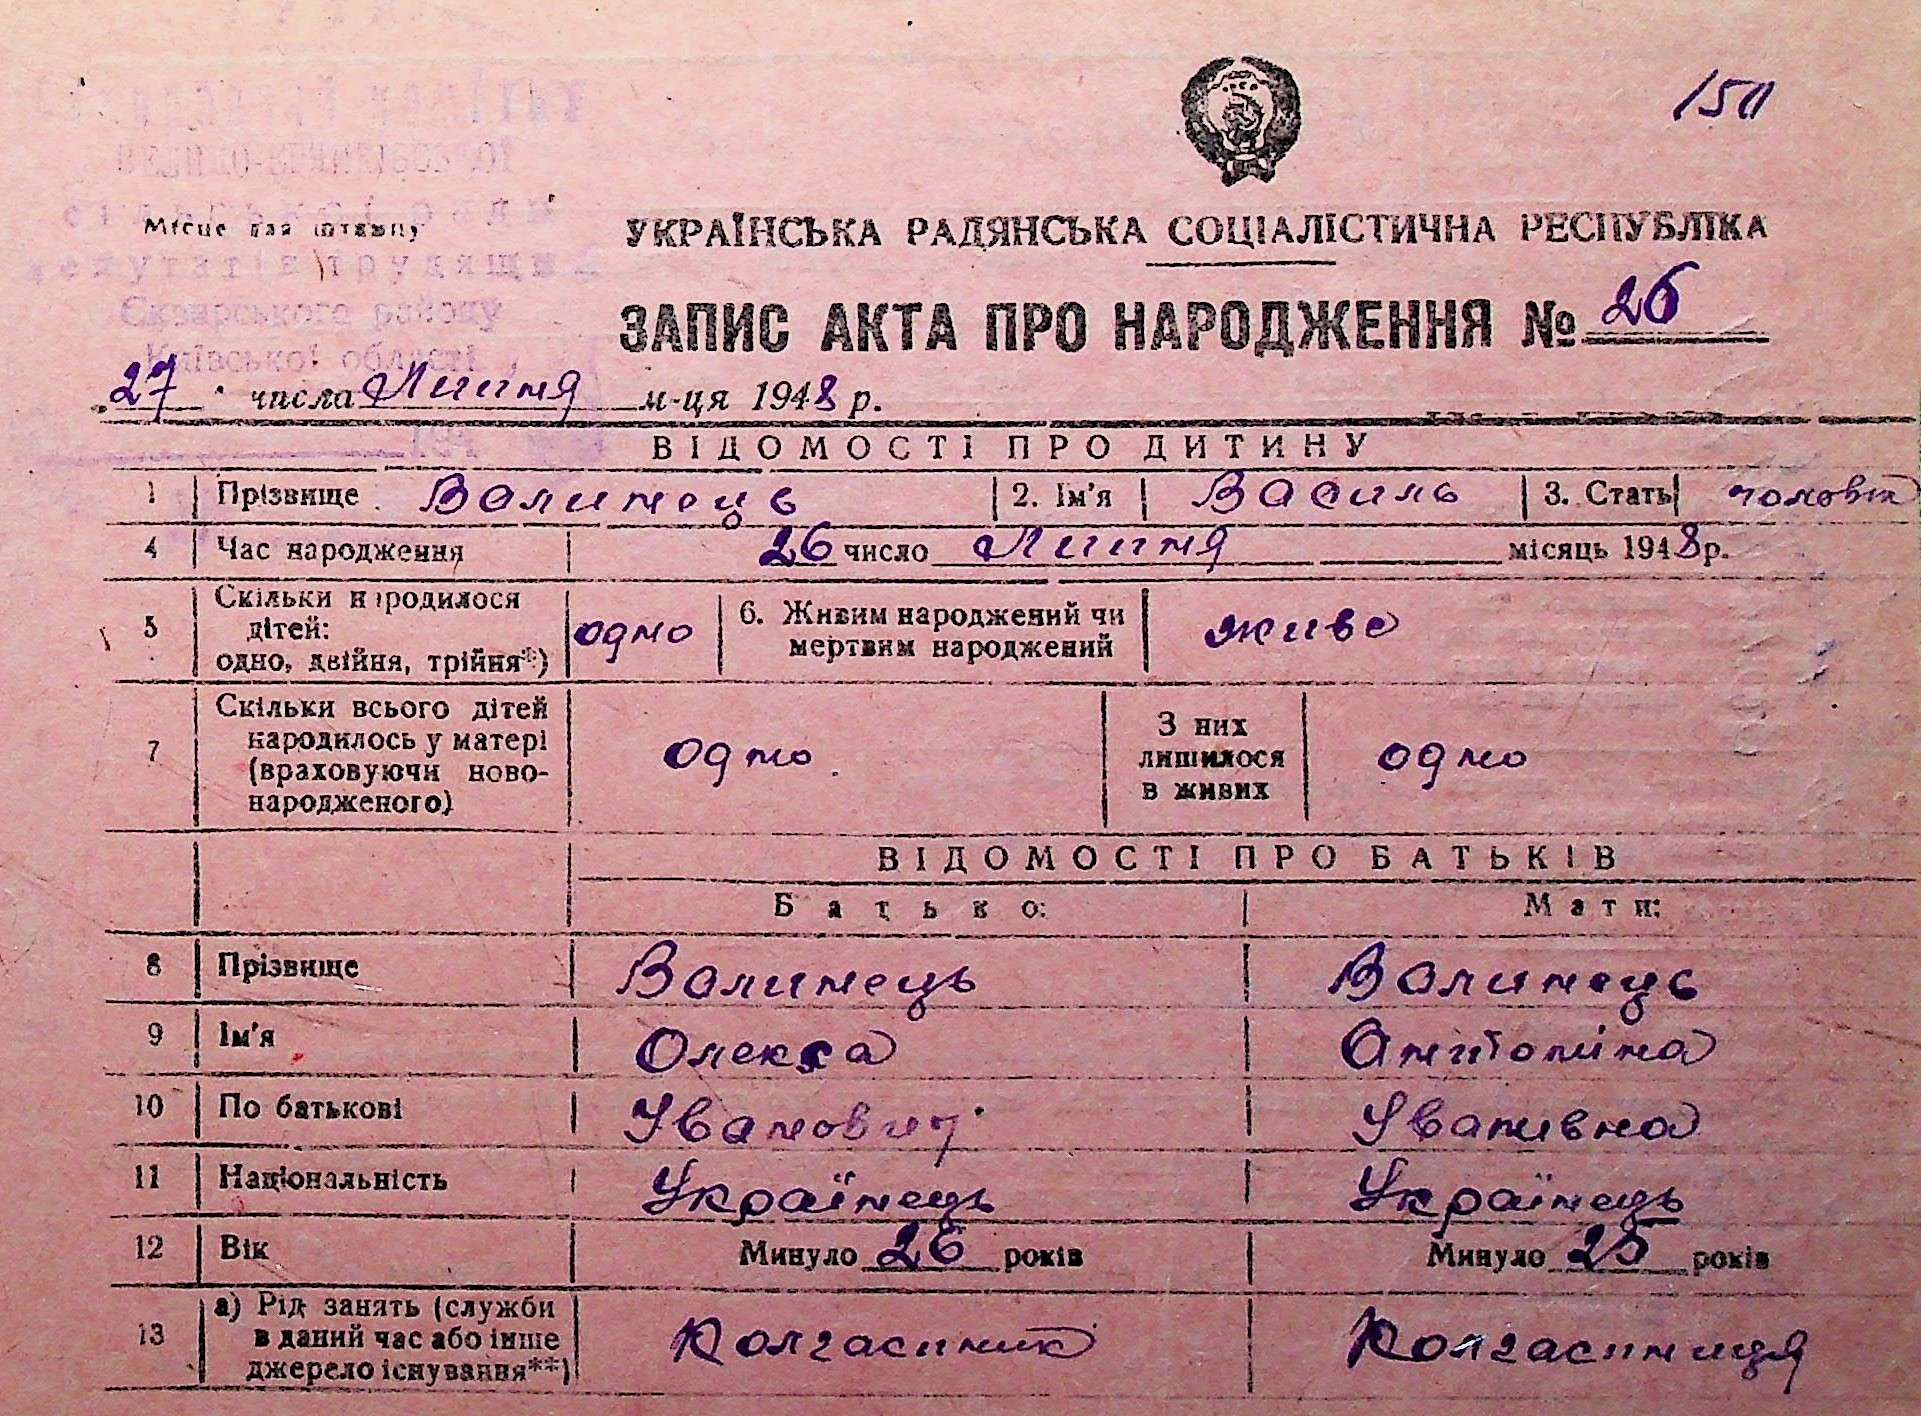 150
Місце для штампу
УКРАЇНСЬКА РАДЯНСЬКА СОЦІАЛІСТИЧНА РЕСПУБЛІКА
сільської ради
депутатів трудящих
Сквирського району
Київської області
ЗАПИС АКТА ПРО НАРОДЖЕННЯ № 26
27 числа Липня м-ця 1948 р.
ВІДОМОСТІ ПРО ДИТИНУ
1 Прізвище Волинець 2. Ім'я Василь 3. Стать чоловік
4 Час народження 26 число Липня місяць 1948 р.
5 Скільки народилося
дітей:
одно, двійня, трійня*) одно 6. Живим народжений чи
мертвим народжений живе
7 Скільки всього дітей
народилось у матері
(враховуючи ново-
народженого) одно З них
лишилося
в живих одно
ВІДОМОСТІ ПРО БАТЬКІВ
Батько: Мати:
8 Прізвище Волинець Волинець
9 Ім'я Олекса Антоніна
10 По батькові Іванович Іванивна
11 Національність Українець Українець
12 Вік Минуло 26 років Минуло 25 років
13 а) Рід занять (служби
в даний час або інше
джерело існування**) Колгоспник Колгоспниця